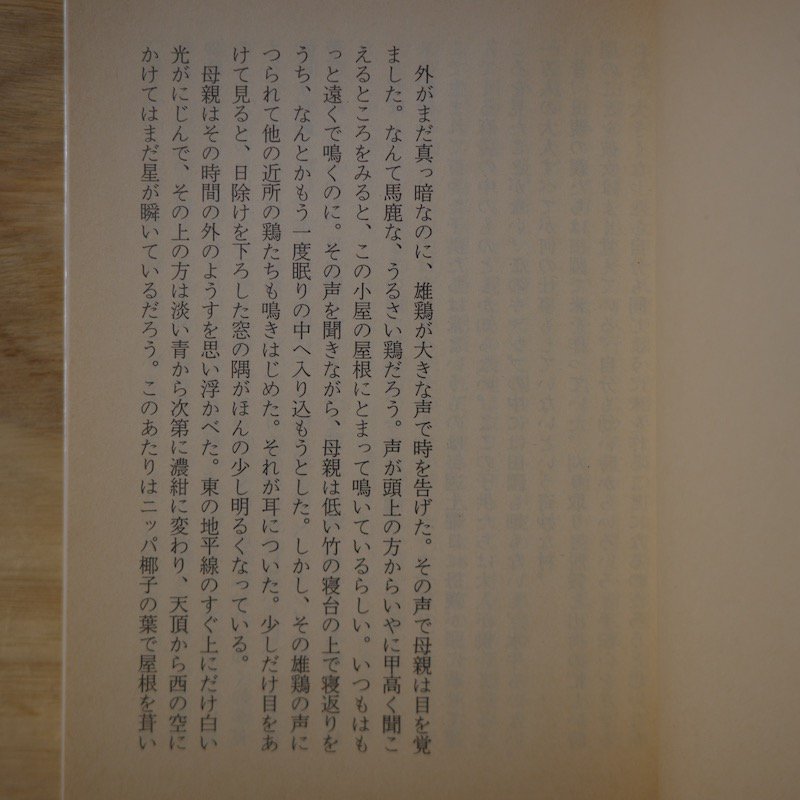 外がまだ真っ暗なのに、雄鶏が大きな声で時を告げた。その声で母親は目を覚
ました。なんて馬鹿な、うるさい鶏だろう。声が頭上の方からいやに甲高く聞こ
えるところをみると、この小屋の屋根にとまって鳴いているらしい。いつもはも
っと遠くで鳴くのに。その声を聞きながら、母親は低い竹の寝台の上で寝返りを
うち、なんとかもう一度眠りの中へ入り込もうとした。しかし、その雄鶏の声に
つられて他の近所の鶏たちも鳴きはじめた。それが耳についた。少しだけ目をあ
けて見ると、日除けを下ろした窓の隅がほんの少し明るくなっている。
母親はその時間の外のようすを思い浮かべた。東の地平線のすぐ上にだけ白い
光がにじんで、その上の方は淡い青から次第に濃紺に変わり、天頂から西の空に
かけてはまだ星が瞬いているだろう。このあたりはニッパ椰子の葉で屋根を葺い